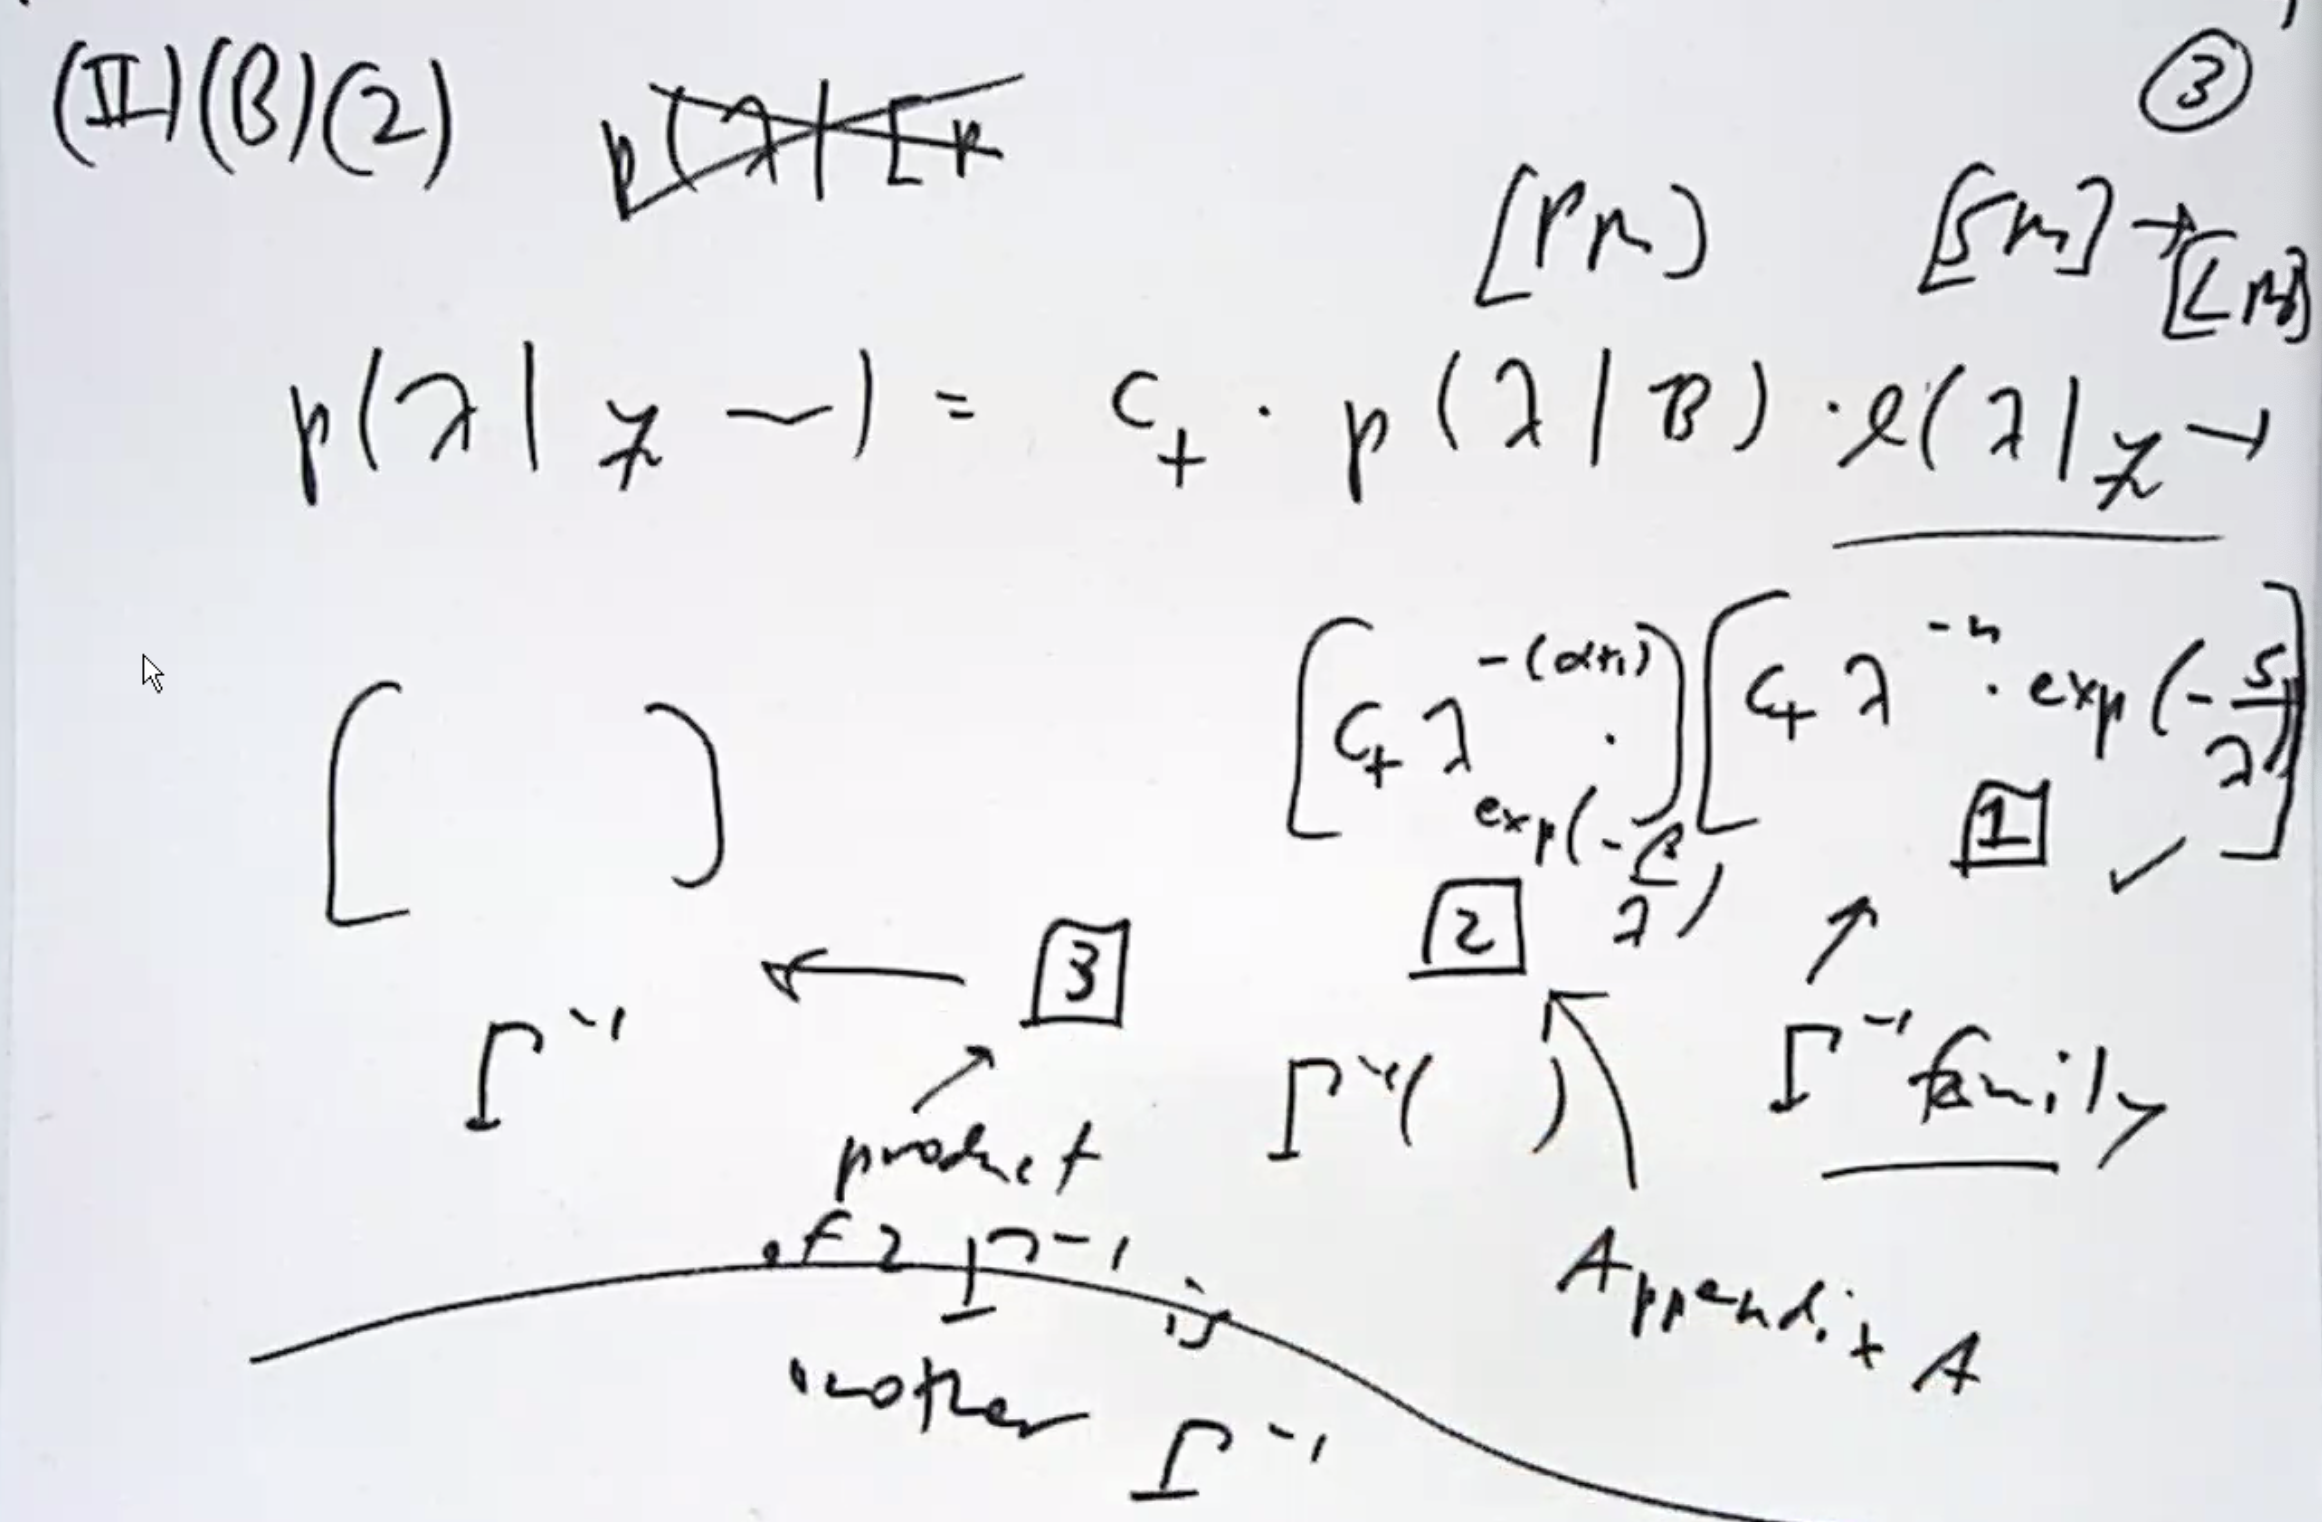 (II)(B)(2) p(λ|[P ③
[PM] [SM] → [LM]
p(λ|y ~) = c₊ · p(λ|B) · ℓ(λ|y ⇁
[ ] [c₊ λ^-(α+1) · exp(-β/λ)] [c₊ λ^-n · exp(-S/λ)]
3 2 1 ✓
Γ⁻¹ Γ⁻¹( ) Γ⁻¹ family
product
of 2 Γ⁻¹ is
another Γ⁻¹
Appendix A